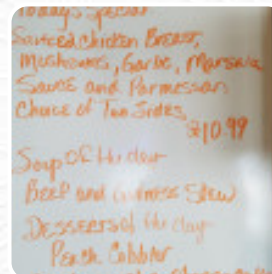 Today's Special
Sauteed Chicken Breast,
Mushrooms, Garlic, Marsala
Sauce and Parmesan
Choice of Two Sides
$10.99
Soup Of the day
Beef and Guinness Stew
Desserts of the day
Peach Cobbler